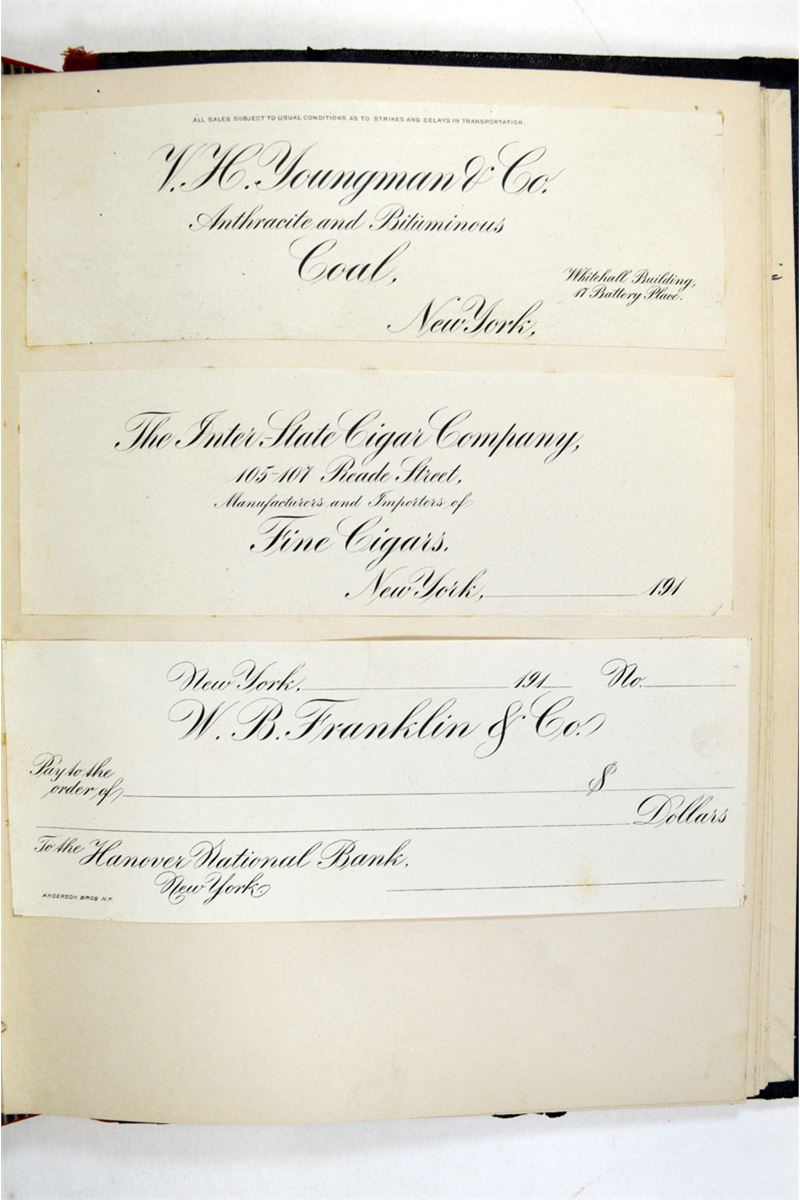 ALL SALES SUBJECT TO USUAL CONDITIONS AS TO STRIKES AND DELAYS IN TRANSPORTATION.
V. H. Youngman & Co.
Anthracite and Bituminous
Coal,
Whitehall Building,
17 Battery Place.
New York,
The Inter-State Cigar Company,
105-107 Reade Street,
Manufacturers and Importers of
Fine Cigars.
New York, 191
New York, 191 No.
W. B. Franklin & Co.
Pay to the
order of $
Dollars
To the Hanover National Bank,
New York
ANDERSON BROS N.Y.